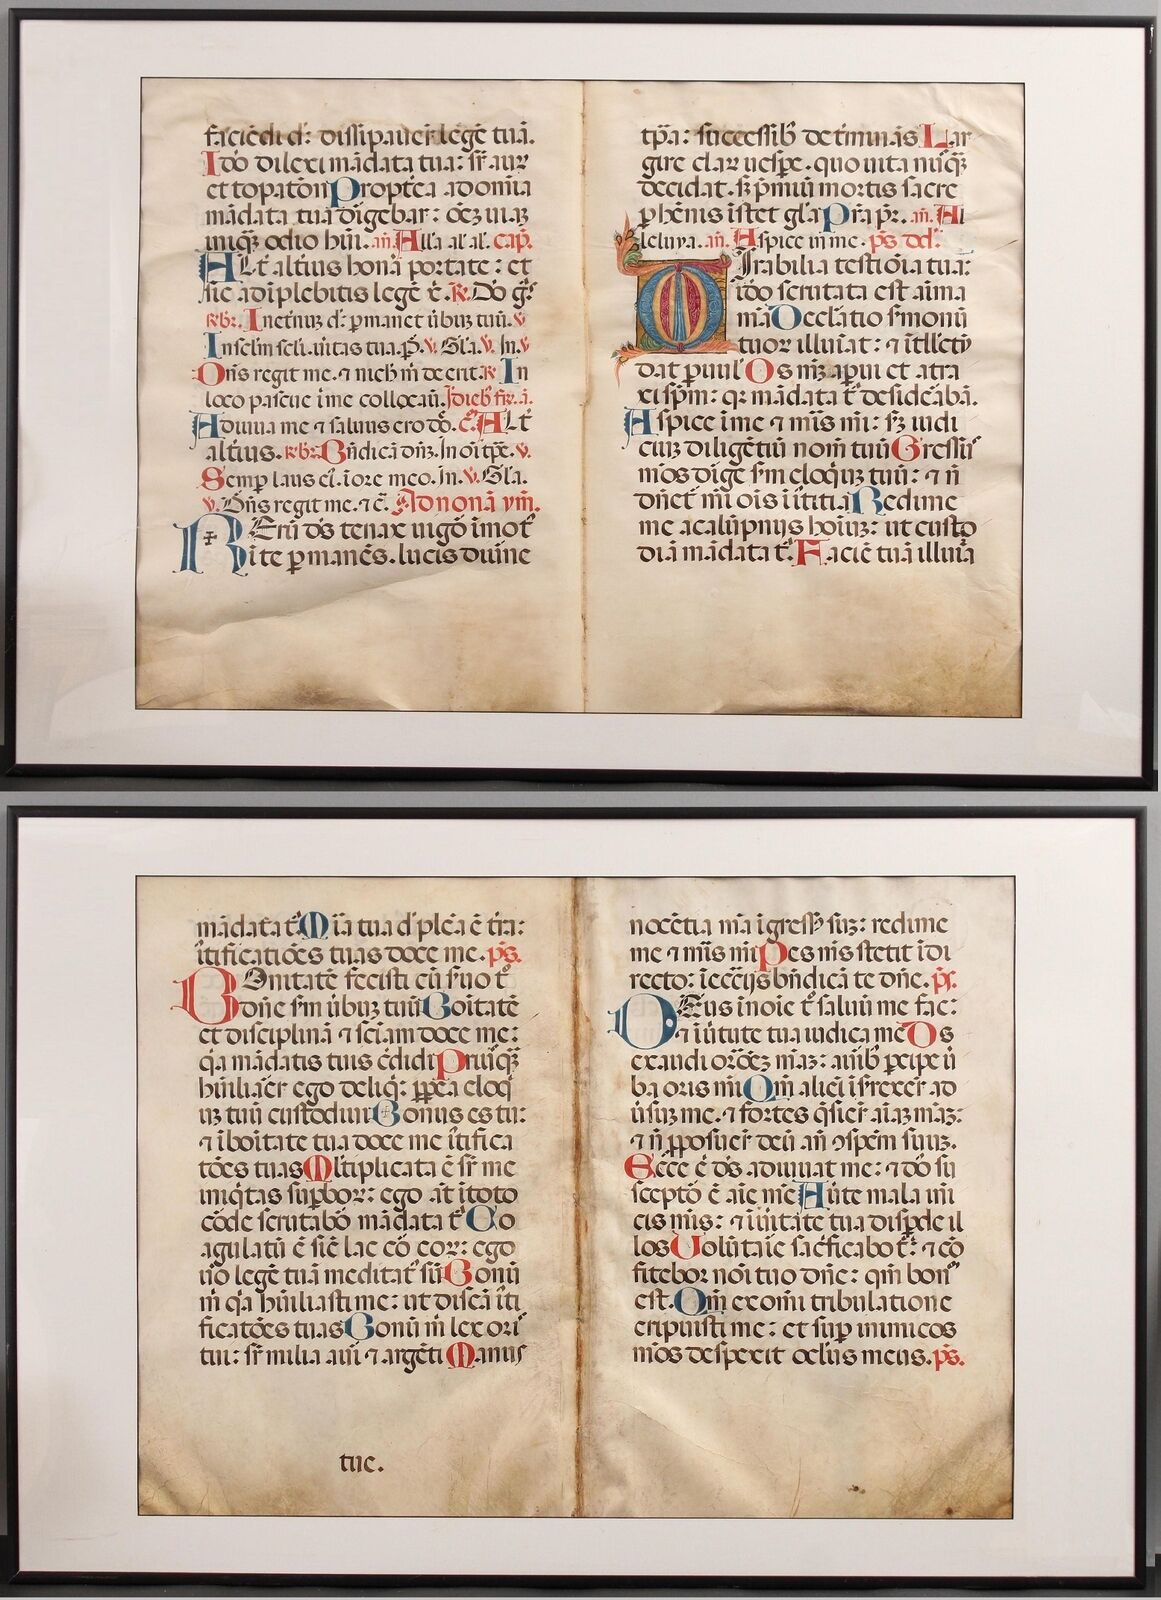 faciēdi dñ: dissipaver̄ legē tuā.
Idō dilexi mādata tua: sr̄ aur
et topatōn Propťea ad omīa
mādata tua dīgebar: oēz uiaz
iniq̄z odio hūi. añ. Alla al̄ al̄. cap̄.
Alť altīus honā portate: et
sic adīplebitis legē c̄. R. Dō gr̄s
r̄br. In etñuz d: permanet
v̄
In scl̄m scli. uitas tua. p̄. v̄. Gl̄a. v̄. In. v̄
Dñs regit me. ⁊ nich̄ m̄ deerit R̄ In
loco pascue ime collocaū.
Adiuua me ⁊ saluus ero dō. c̄. Alť
altīus. r̄br. Bñdicā dñz. In oī tp̄e. v̄.
Semp laus ei. i ore meo. In. v̄. Gl̄a.
v̄. Dñs regit me. ⁊ c̄. Ad nonā ym̄.
REru ds̄ tenax uigō īmot'
ī te p̄manēs. lucis diurne
tp̄a: successib' detīminās Lar
gire clar uesp̄e. quo uita nūq̄z
decidat. s̄z p̄miū mortis sacre
p̄hēnis īstet gl̄a Pr̄a pr̄. añ. Al
leluya. añ. Aspice in me. ps dd'.
MIrabilia testiōia tua:
idō scrutata est aīma
mā Declātio s̄monū
tuor illuīat: ⁊ ītllectū
dat p̄uul' Os m̄z apui et atra
xi sp̄m: q: mādata t' desidēabā.
Aspice ī me ⁊ mis m̄i: s̄z iudi
ciuz diligētiū nom̄ tuū Gressū'
m̄os dīge s̄m eloq̄uz tuū: ⁊ n̄
dn̄et m̄i oīs īūtitia Redime
me a calūpnijs hoīuz: ut custo
diā mādata t'. Faciē tuā illuīa
mādata t' M īa tua d' plēa ē tr̄a:
īūtificatiōes tuas doce me. ps.
BOnitatē fecisti cū s̄uo t'
dn̄e s̄m ūbuz tuū Boītatē
et disciplinā ⁊ sciam doce me:
q̄a mādatis tuis c̄didi Priuq̄z
hūiliaer ego deliq̄: p̄p̄ea eloq̄
uz tuū custodiui Bonus es tu:
⁊ ī boītate tua doce me ītifica
tōes tuas Mltiplicata ē sr̄ me
iniq̄tas suꝑbor: ego at̄ ī toto
cōde scrutabō mādata t' Co
agulatū ē sic̄ lac cō eor: ego
ūo legē tuā meditat' sū Bonū
m̄ q̄a hūiliasti me: ut discā īti
ficatōes tuas Bonū m̄ lex ori'
tui: sr̄ milia auri ⁊ argēti Manus
tue.
nocētia mā īgress' suz: redime
me ⁊ mis m̄i Pes m̄s stetit ī di
recto: ī ecc̄ijs bn̄dicā te dn̄e. ps.
DEus ī noīe t' saluū me fac:
⁊ ī ūtute tua iudica me Ds
exaudi orōez māz: aurib' p̄cipe ū
ba oris m̄i Qm̄ alieī īsrexer̄ ad
ūsuz me. ⁊ fortes q̄sier̄ aīaz māz:
⁊ n̄ ꝓposuer̄ deū añ ꝯspem̄ suuz.
Ecce ē ds̄ adiuuat me: ⁊ dō su
sceptō ē aīe m̄e Aūte mala īmi
cis m̄is: ⁊ ī ūitate tua disp̄de il
los Uolūtaīe sac̄ficabo t': ⁊ cō
fitebor noī tuo dn̄e: qm̄ bon"
est. Qm̄ ex om̄i tribulatione
eripuisti me: et sup̄ inimicos
m̄os despexit oclūs meus. ps.